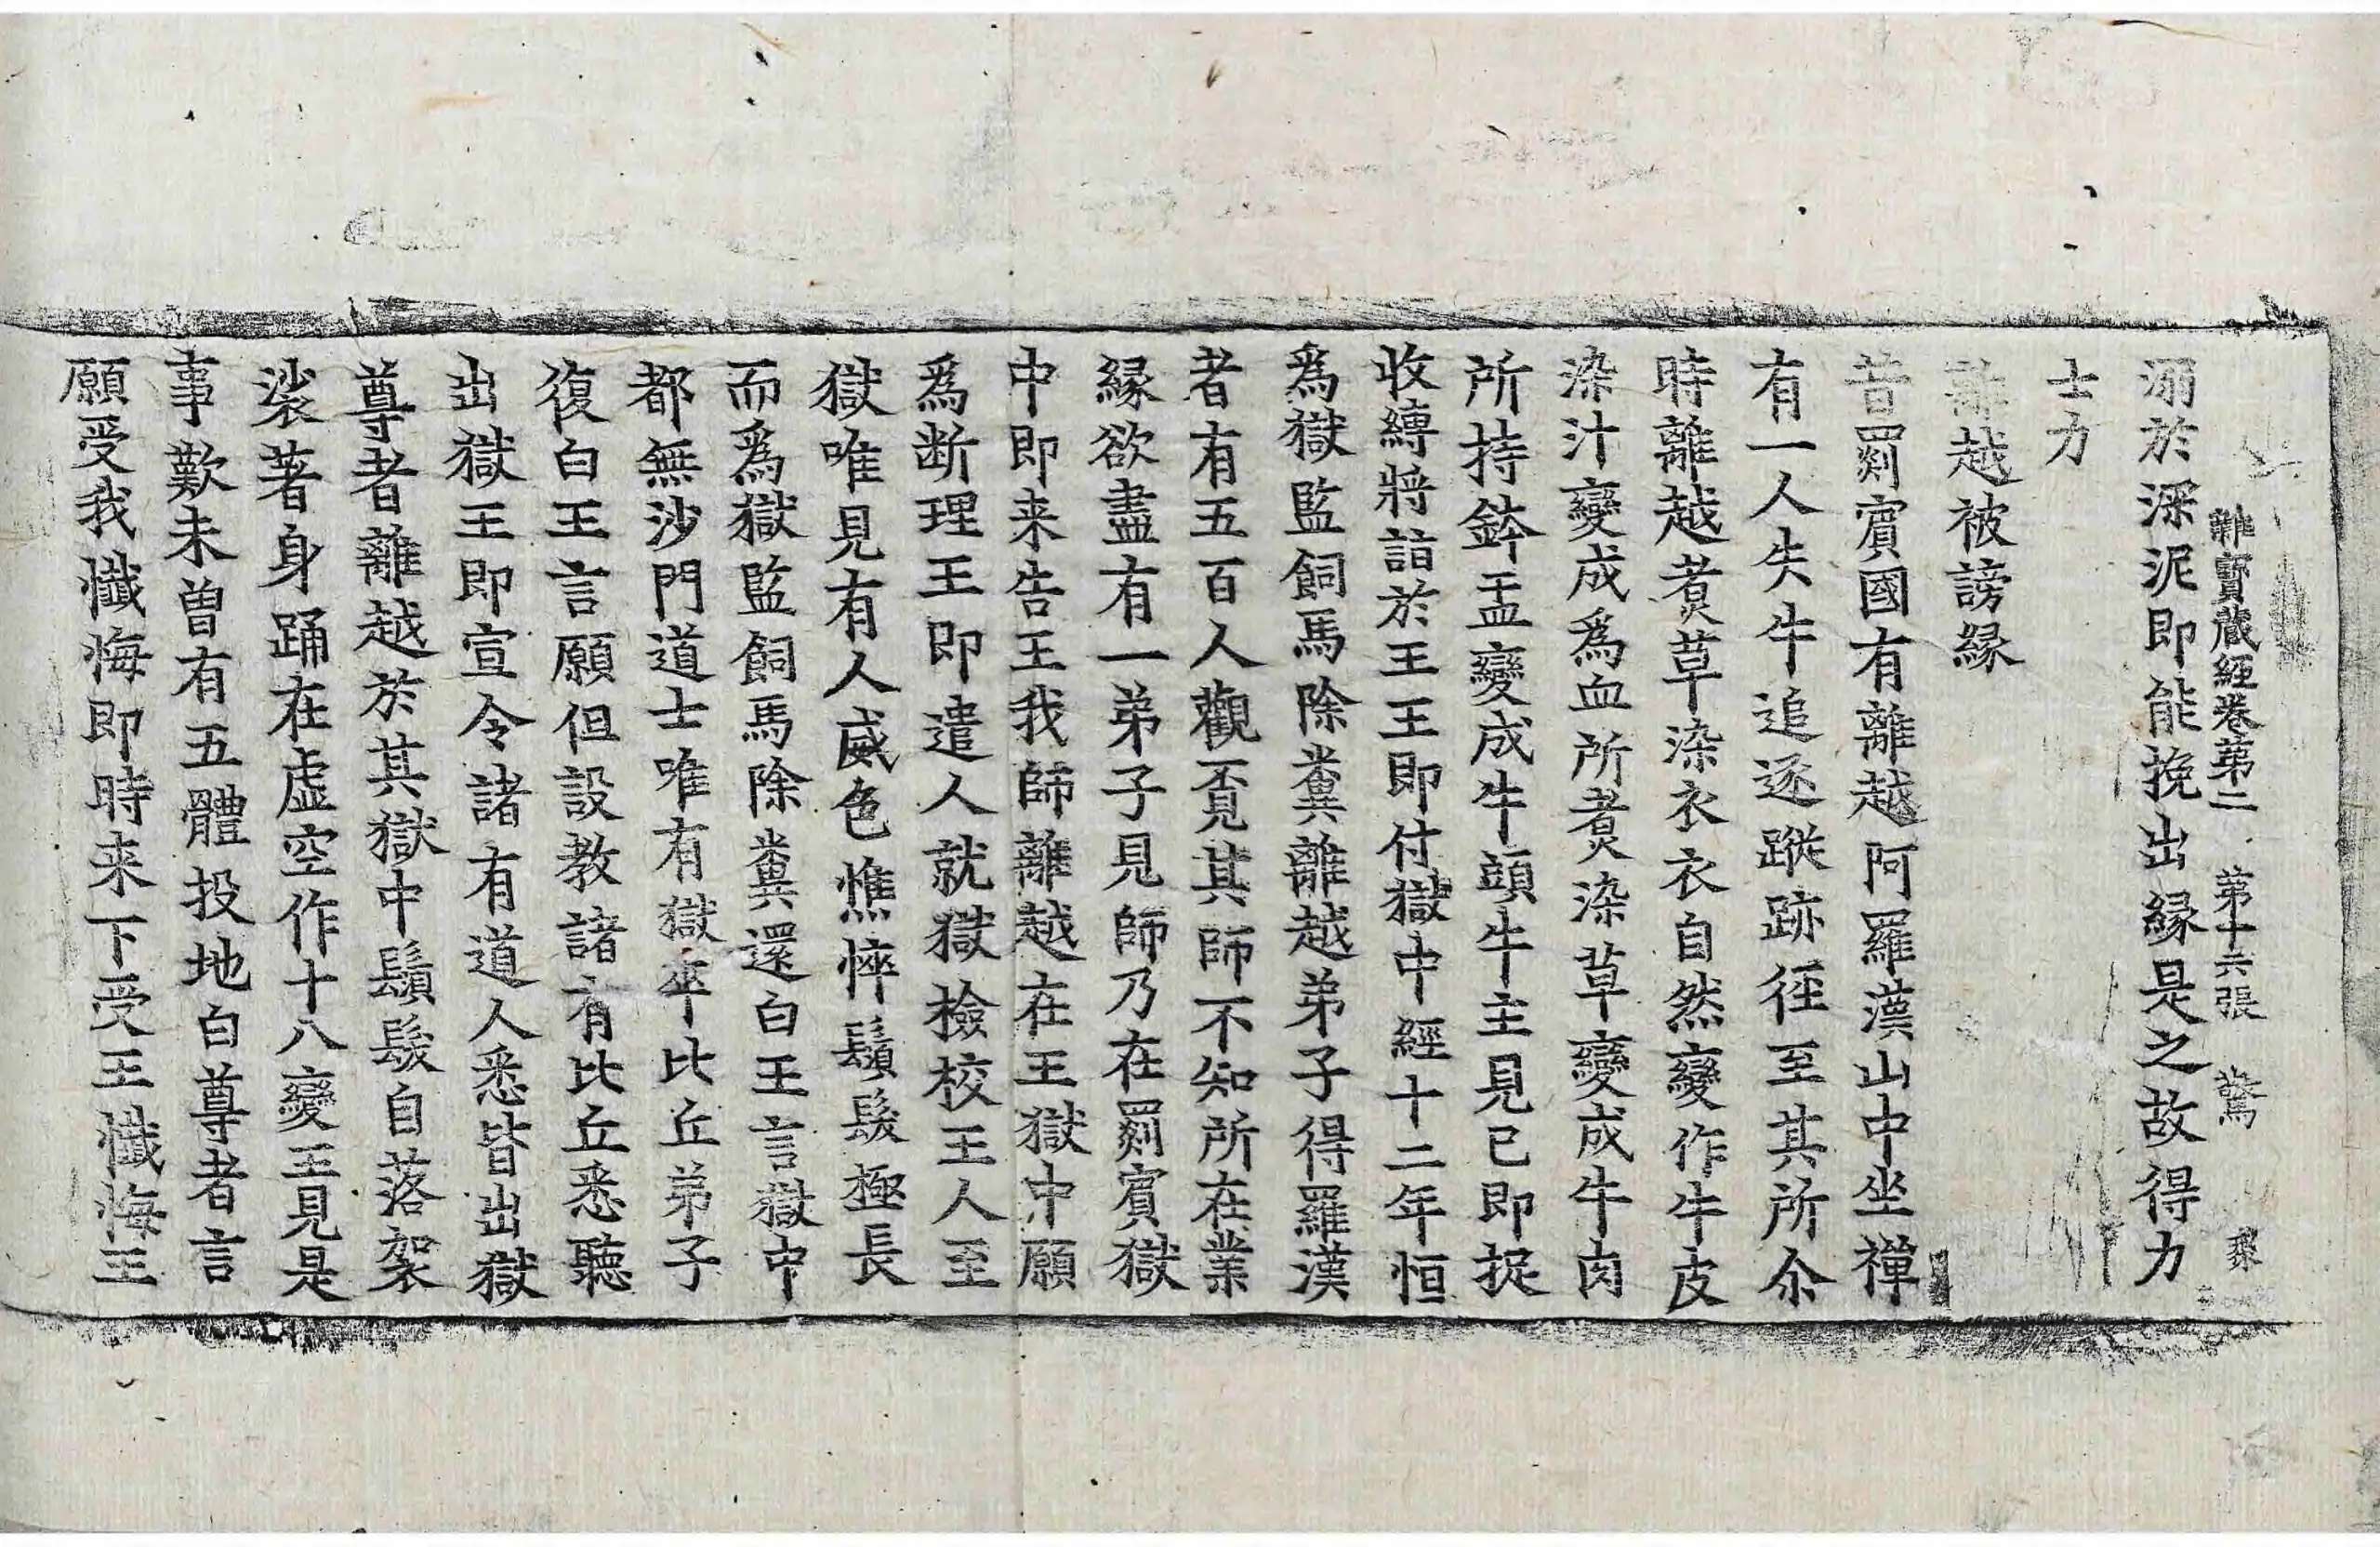 雜寶蔵經卷第二 第十六張 驚
溺於深泥即能挽出縁是之故得力
士力
離越被謗縁
昔罽賓國有離越阿羅漢山中坐禪
有一人失牛追逐蹤跡徑至其所尒
時離越煮草染衣衣自然變作牛皮
染汁變成爲血所煮染草變成牛肉
所持鉢盂變成牛頭牛主見已即捉
收縛將詣於王王即付獄中經十二年恒
爲獄監飼馬除糞離越弟子得羅漢
者有五百人觀覓其師不知所在業
縁欲盡有一弟子見師乃在罽賓獄
中即来告王我師離越在王獄中願
爲断理王即遣人就獄撿校王人至
獄唯見有人威色憔悴鬚髮極長
而爲獄監飼馬除糞還白王言獄中
都無沙門道士唯有獄卒比丘弟子
復白王言願但設教諸有比丘悉聽
出獄王即宣令諸有道人悉皆出獄
尊者離越於其獄中鬚髮自落袈
裟著身踊在虚空作十八變王見是
事歎未曽有五體投地白尊者言
願受我懺悔即時来下受王懺悔王